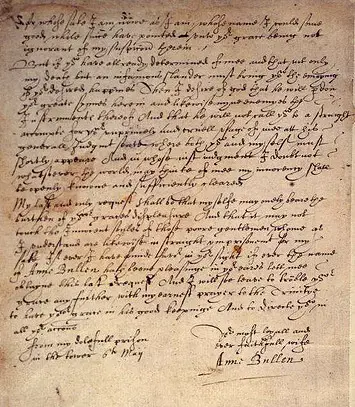 for whose sake I am nowe as I am, whose name I could some
good while since have pointed at, yor grace being not
ignorant of my suspition therein.
But if yo have allready determined of mee and that not only
my death but an infamous slander must bring yo the enioying
of yor desired happines Then I desire of god that he will pardon
yor greate sinnes herein and likewise myne enemies the
instruments thereof And that he will not call yo to a straight
accompte for yor unprincely and cruell usage of mee att his
generall Judgment seate where both yo and my selfe must
shortly appeare And in whose iust iudgment I doubt not
whatsoever the world may thinke of mee my innocency shalbe
openly knowne and sufficiently cleared
My last and only request shall be that my selfe may only beare the
burthen of yor graces displeasure And that it may not
touch the innocent soules of those poore gentlemen whome as
I understand are likewise in straight imprisonment for my
sake If ever I have found favor in yor sight if ever the name
of Anne Bullen have beene pleasinge in yor eares lett mee
obtayne this last request And I will soe leave to trouble yor
grace any further with my earnest prayer to the Trinitye
to have yor grace in his good keepinge And to directe yo in
all yor actions
from my dolefull prison
in the tower 6th May
Yor most loyall and
ever faithfull wife
Anne Bullen